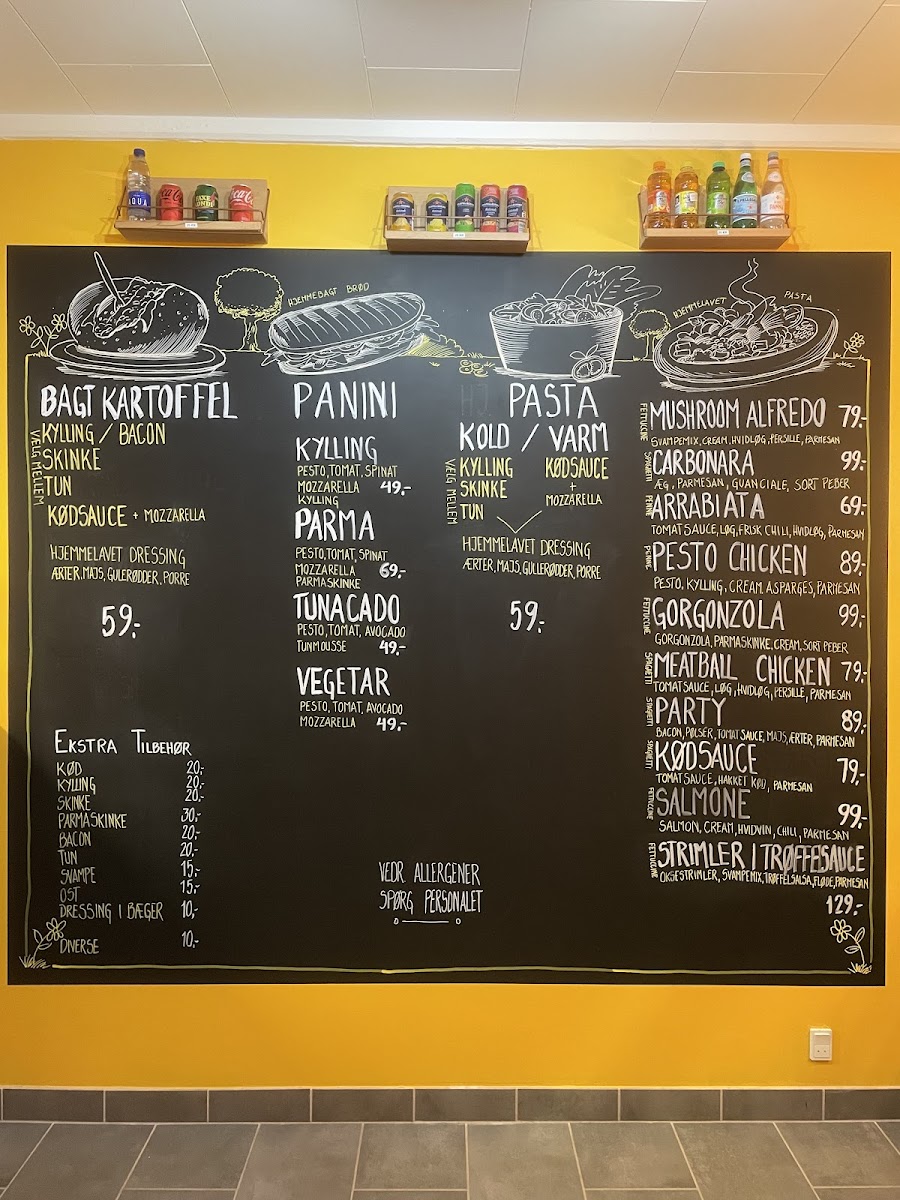 AQUA
Coca-Cola
HJEMMEBAGT BRØD
HJEMMELAVET PASTA
BAGT KARTOFFEL
VÆLG MELLEM
KYLLING / BACON
SKINKE
TUN
KØDSAUCE + MOZZARELLA
HJEMMELAVET DRESSING
ÆRTER, MAJS, GULERØDDER, PORRE
59,-
EKSTRA TILBEHØR
KØD 20,-
KYLLING 20,-
SKINKE 20,-
PARMASKINKE 30,-
BACON 20,-
TUN 20,-
SVAMPE 15,-
OST 15,-
DRESSING I BÆGER 10,-
DIVERSE 10,-
PANINI
KYLLING
PESTO, TOMAT, SPINAT
MOZZARELLA 49,-
KYLLING
PARMA
PESTO, TOMAT, SPINAT
MOZZARELLA 69,-
PARMASKINKE
TUNACADO
PESTO, TOMAT, AVOCADO
TUNMOUSSE 49,-
VEGETAR
PESTO, TOMAT, AVOCADO
MOZZARELLA 49,-
HJ. PASTA
KOLD / VARM
VÆLG MELLEM
KYLLING
SKINKE
TUN
KØDSAUCE
+
MOZZARELLA
HJEMMELAVET DRESSING
ÆRTER, MAJS, GULLERØDDER, PORRE
59,-
VEDR ALLERGENER
SPØRG PERSONALET
FETTUCINE
MUSHROOM ALFREDO 79,-
SVAMPEMIX, CREAM, HVIDLØG, PERSILLE, PARMESAN
SPAGHETTI
CARBONARA 99,-
ÆG, PARMESAN, GUANCIALE, SORT PEBER
PENNE
ARRABIATA 69,-
TOMATSAUCE, LØG, FRISK CHILI, HVIDLØG, PARMESAN
PENNE
PESTO CHICKEN 89,-
PESTO, KYLLING, CREAM, ASPARGES, PARMESAN
FETTUCINE
GORGONZOLA 99,-
GORGONZOLA, PARMASKINKE, CREAM, SORT PEBER
SPAGHETTI
MEATBALL CHICKEN 79,-
TOMATSAUCE, LØG, HVIDLØG, PERSILLE, PARMESAN
SPAGHETTI
PARTY 89,-
BACON, PØLSER, TOMATSAUCE, MAJS, ÆRTER, PARMESAN
SPAGHETTI
KØDSAUCE 79,-
TOMATSAUCE, HAKKET KØD, PARMESAN
FETTUCINE
SALMONE 99,-
SALMON, CREAM, HVIDVIN, CHILI, PARMESAN
FETTUCINE
STRIMLER I TRØFFESAUCE
OKSESTRIMLER, SVAMPEMIX, TRØFFELSALSA, FLØDE, PARMESAN
129,-